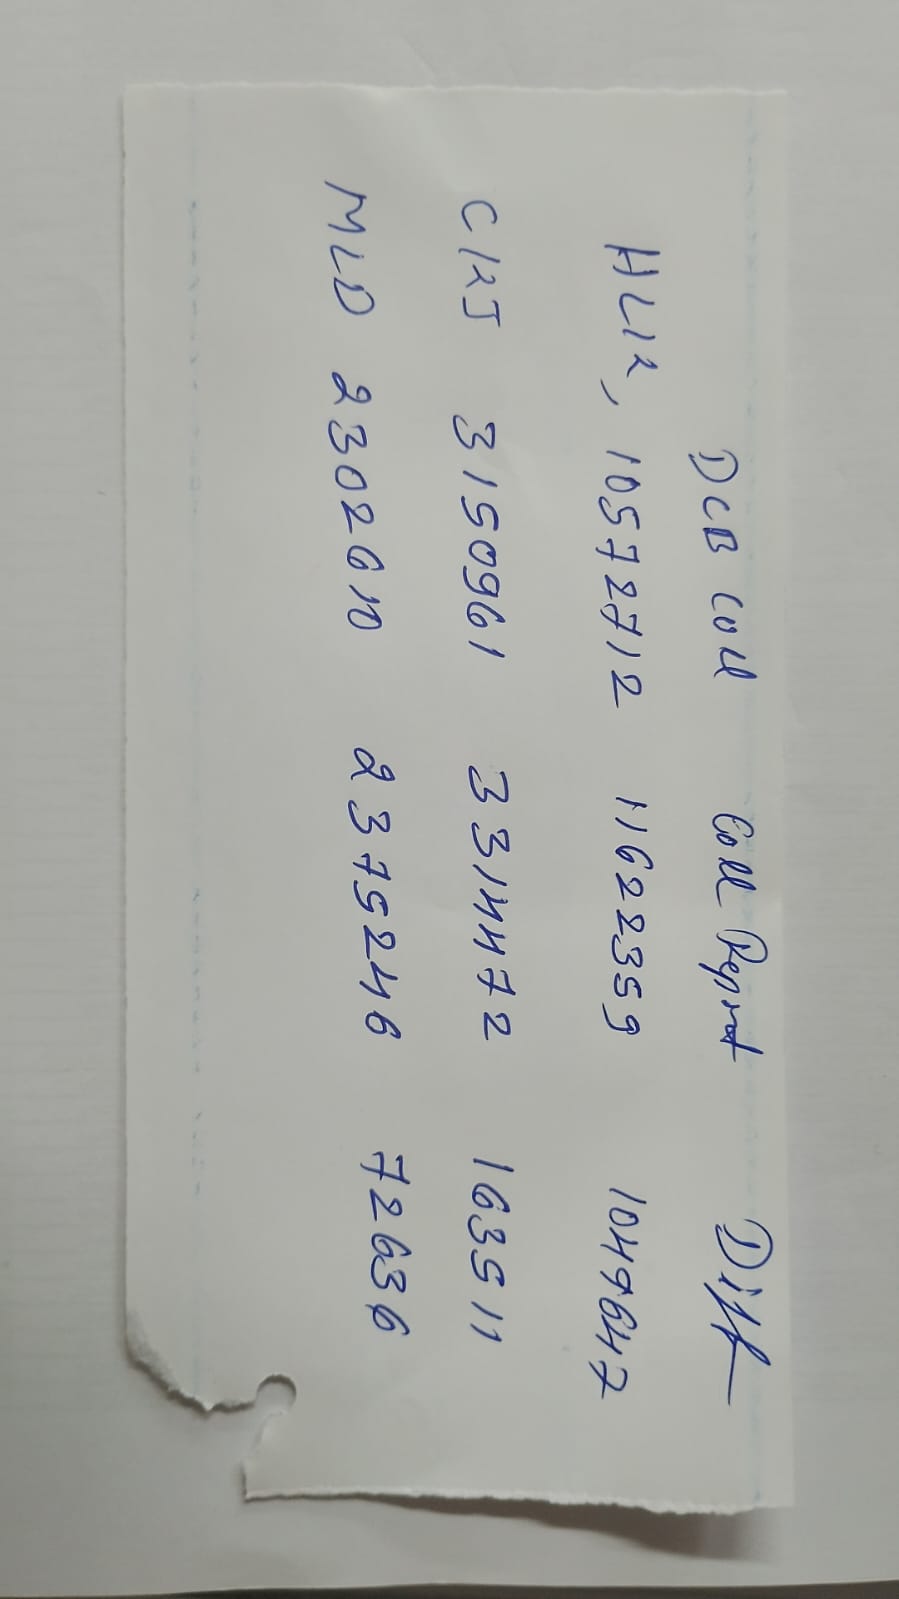 DCB Coll Coll Report Diff
HLK, 10572712 11622359 1049647
CKJ 3150961 3314472 163511
MLD 2302610 2375246 72636